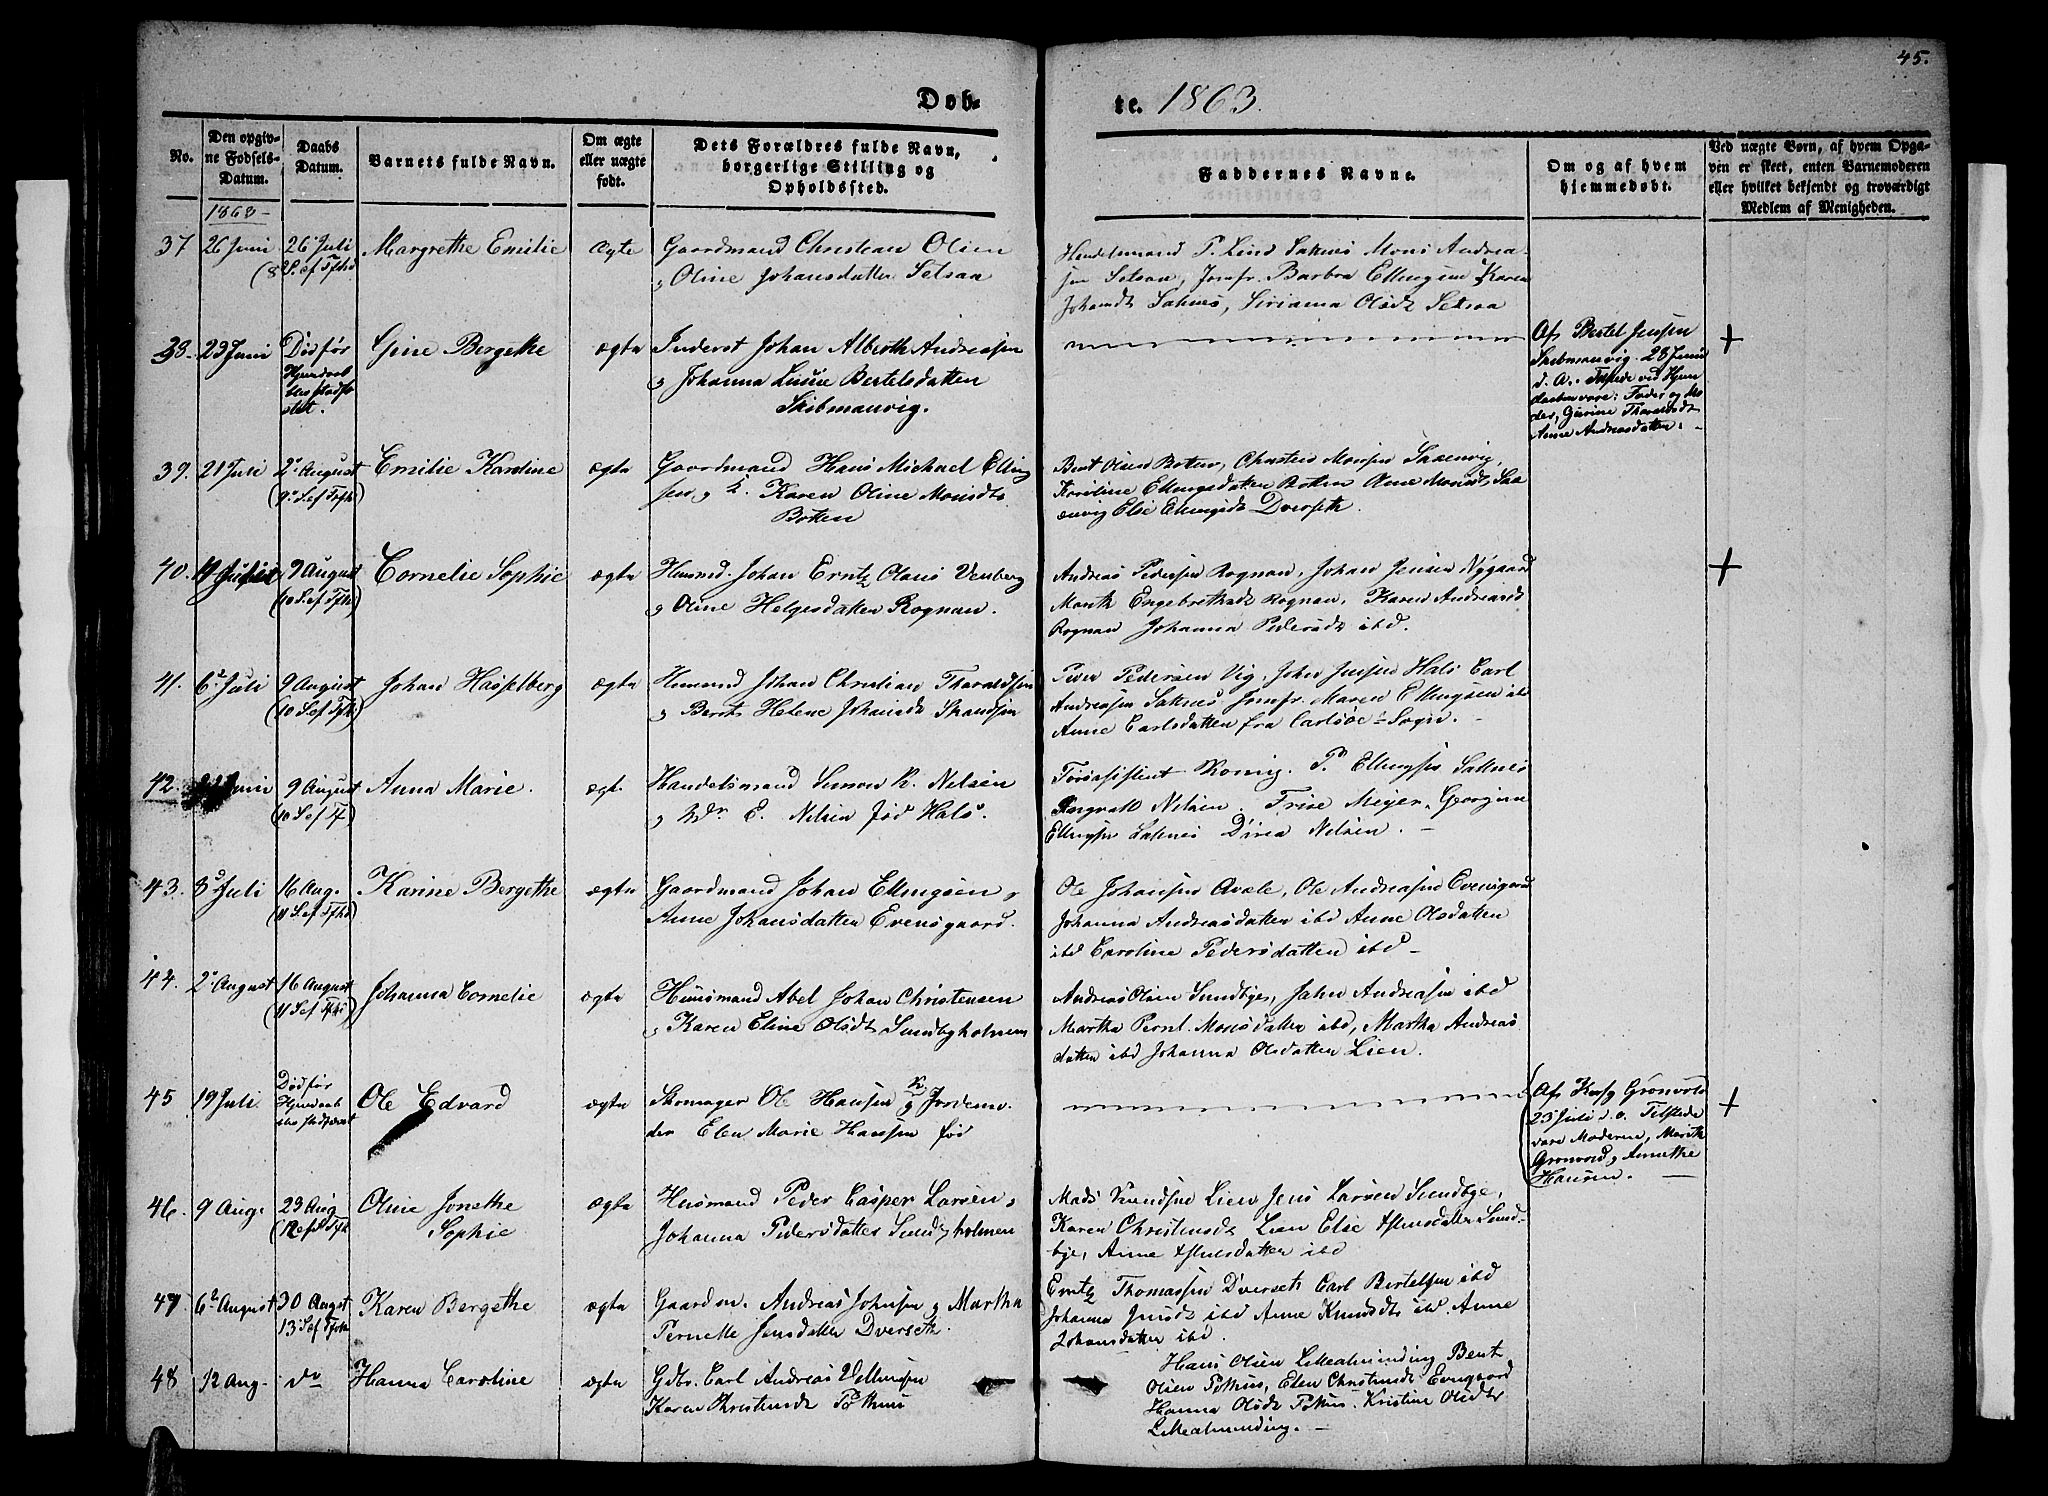 45.
Døb-
te. 1863.
No.
Den opgiv-
ne Fødsels-
Datum.
Daabs
Datum.
Barnets fulde Navn.
Om ægte
eller uægte
født.
Dets Forældres fulde Navn,
borgerlige Stilling og
Opholdssted.
Faddernes Navne.
Om og af hvem
hjemmedøbt.
Ved uægte Børn, af hvem Opga-
ven er skeet, enten Barnemoderen
eller hvilket bekjendt og troværdigt
Medlem af Menigheden.
1863
37 26 Juni 26 Juli Margrethe Emilie ægte Gaardmand Christian Olsen
(8 S. ef Tfhd
Oline Johansdatter Setsaa
Handelsmand P. Lund Saknes Mons Andrea-
sen Setsaa, Jomfr. Barbra Ellingsen Karen
Johansdt Saknes, Siriana Olsdt Setsaa
38. 23 Juni Død før Gine Bergethe ægte Inderst Johan Albreth Andreasen
Johanna Bertelsdatter
Skibmanvig.
Af Bertel Jensen
Skibmanvig 28 Juni
d. A. Tilstede ved Hjem
daaben vare: Fader og Mo
der, Thoraldsdt
Anne Andreasdatter.
39. 21 Juli 2 August Emilie Karoline ægte Gaardmand Hans Michael Elling
(9 S. ef Tfh)
sen, Karen Oline Monsdt
Botten
Bent Olsen Boten, Christen Monsen Saxenvig
Karoline Ellingsdatter Botten Anne Monsdt Sax
envig Else Ellingsdt Dverseth.
40. 9 August Cornelie Sophie ægte Johan Erntz Olaus Venberg
(10 S. ef Tfh)
Oline Helgesdatter Rognan.
Andreas Pedersen Rognan, Johan Jensen Nygaard
Marith Engebrethsdt Rognan, Karen Andreasdt
Rognan Johanna Pedersdt ibd.
41. 6 Juli 9 August Johan Hasselberg ægte Johan Christian Thoraldsen
(10 S. ef Tfh)
Berit Helene Johansdt
Peder Pedersen Vig, John Jensen Hals Carl
Andreasen Saknes Jomfr. Maren Ellingsen ibd
Anne Carlsdatter fra Carlsøe Sogn.
42. Juni 9 August Anna Marie. ægt. Handelsmand Simon K. Nelsen
(10 S ef Tf)
E. Nelsen fød Hals.
Konig. P. Ellingsen Saknes
Nelsen. Trine Meyer, Georgine
Ellingsen Saknes Dina Nelsen.
43. 3 Juli 16 Aug. Karine Bergethe ægte Gaardmand Johan Ellingsen,
(11 S. ef Tfhd
Anne Johansdatter Evensgaard.
Ole Johansen Ole Andreasen Evensgaard
Johanna Andreasdatter ibd Anne Olsdatter
ibd Caroline Pedersdatter ibd
44. 2 August 16 August Johanna Cornelie ægte Huusmand Abel Johan Christensen
(11 S ef Tfh)
Karen Eline Olsdt Sundbyholmen
Andreas Olsen Sundbye, Jahn Andreasen ibd
Martha Pernl. Monsdatter ibd, Martha Andreas
datter ibd Johanna Olsdatter Lien.
45 19 Juli. Død før Ole Edvard ægte Skomager Ole Hansen Jordemo.
der Elen Marie Hansen fød
Af Grønvold
23 Juli d. A. Tilstede
vare Moderen, Marith
Grønvold, Annethe
Hansen.
46. 9 Aug. 23 Aug Oline Jonethe ægte Husmand Peder Casper Larsen,
Sophie Johanna Pedersdatter Sundbyholmen
Mads Knudsen Lien Jens Larsen Sundbye,
Karen Christensdt Lien Else datter Sund-
bye, Anne datter ibd
47. 6 August 30 August Karen Bergethe ægte Gaardm. Andreas Johnsen Martha
13 S ef Tfh
Pernelle Jensdatter Dverseth.
Erntz Thomassen Dverseth Carl Bertelsen ibd
Johanna Jensdt ibd Anne Knudsdt ibd. Anne
Johansdatter ibd.
48 12 Aug. do Hanna Caroline ægte Gdbr. Carl Andreas Vellumsen
Karen Christensdt Pothus
Hans Olsen Bent
Olsen Pothus, Elen Christensdt Evensgaard
Hanna Olsdt Pothus. Kristine Olsdt